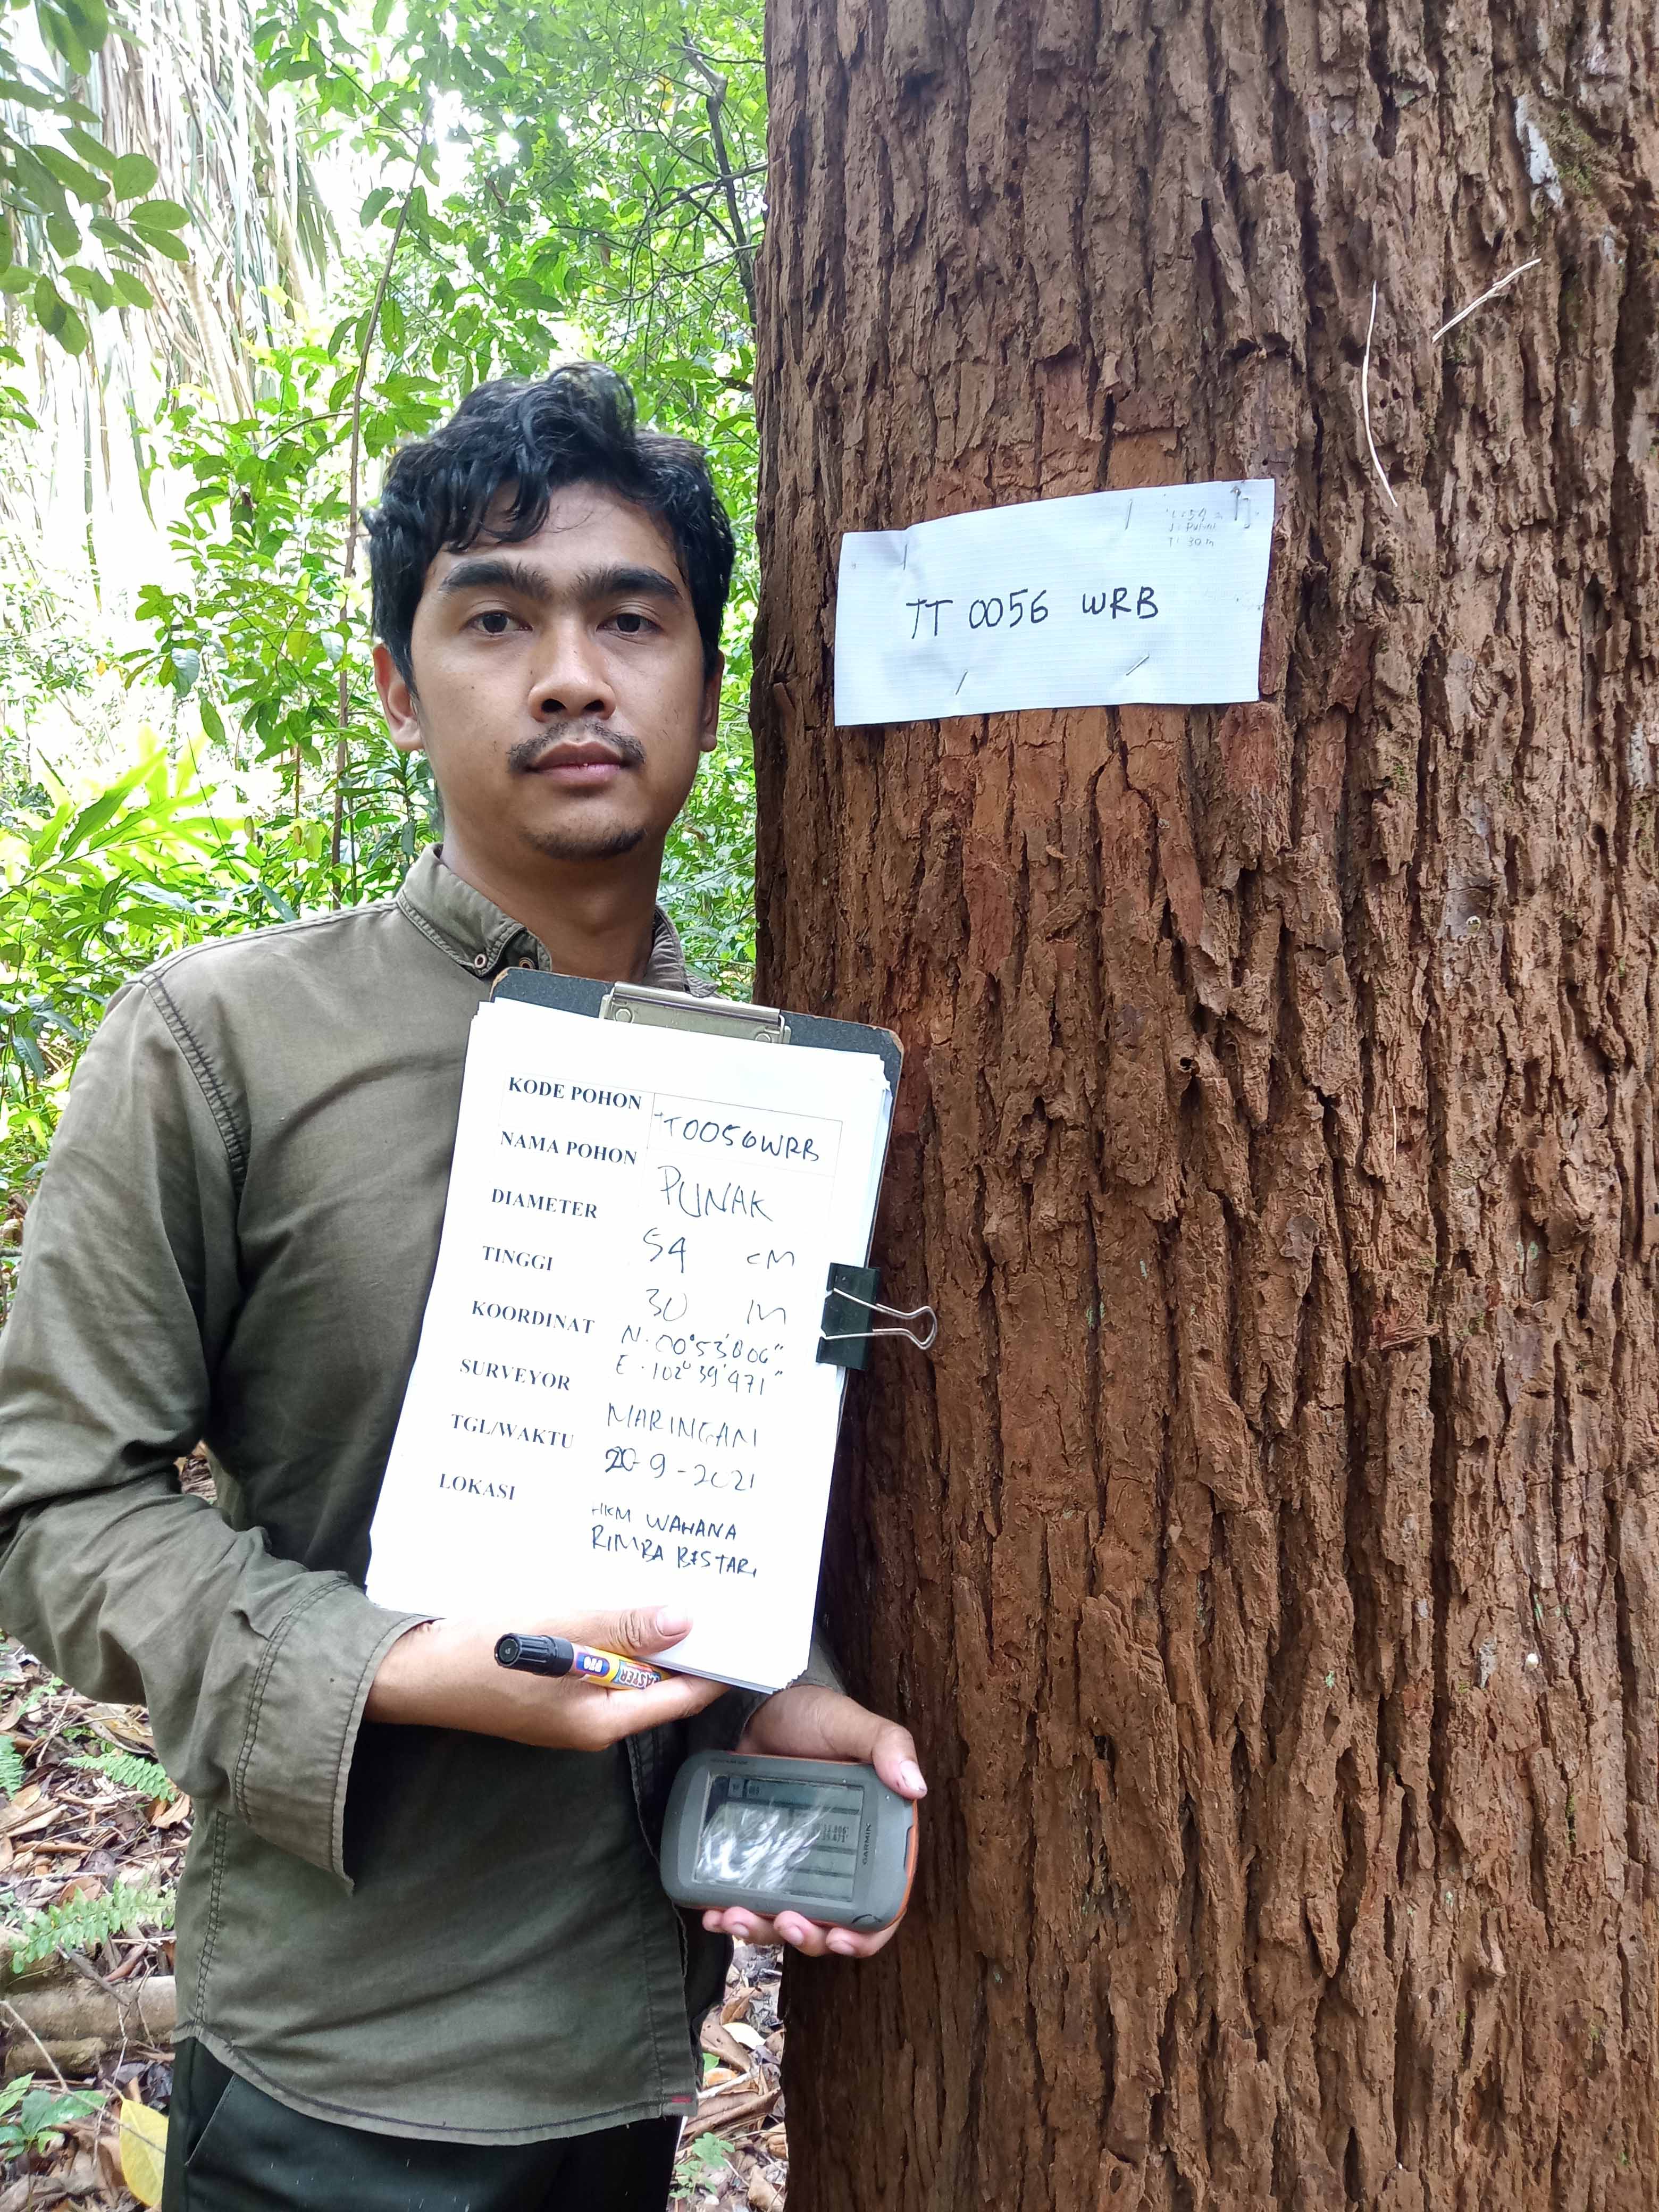 54
30 m
TT 0056 WRB
KODE POHON TT0056WRB
NAMA POHON PUNAK
DIAMETER 54 CM
TINGGI 30 M
KOORDINAT N. 00° 53' 006"
E. 102° 39' 471"
SURVEYOR MARINGAN
TGL/WAKTU 20-9-2021
LOKASI HKM WAHANA
RIMBA BESTARI
GARMIN